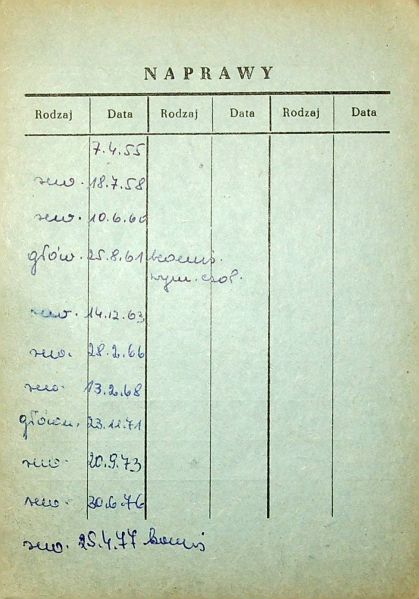 NAPRAWY
Rodzaj Data Rodzaj Data Rodzaj Data
7.4.55
rew. 18.7.58
rew. 10.6.60
głów. 25.8.61 komis.
wym. czoł.
rew. 14.12.63
rew. 28.2.66
rew. 13.2.68
główn. 23.11.71
rew. 20.9.73
rew. 30.6.76
rew. 25.4.77 komis